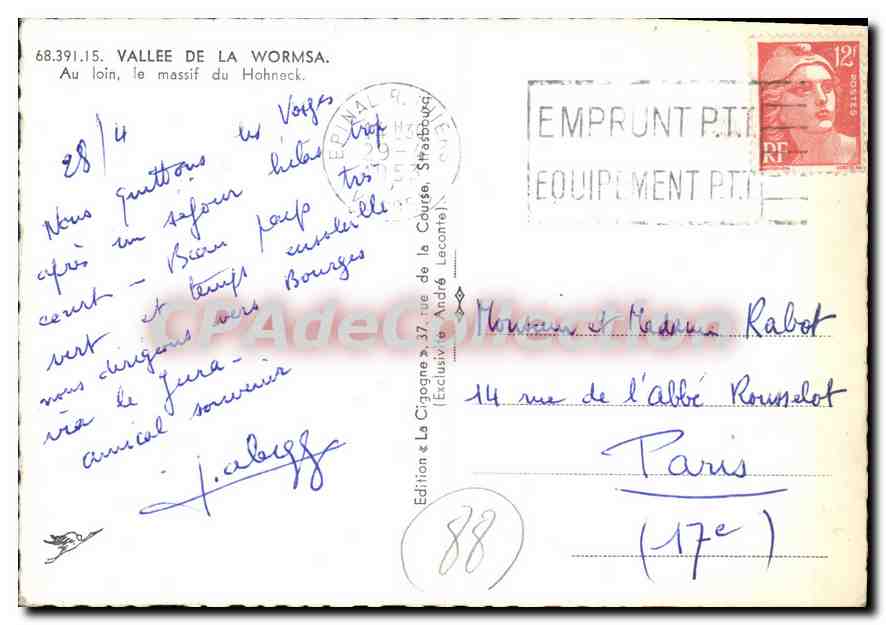 68.391.15. VALLEE DE LA WORMSA.
Au loin, le massif du Hohneck.
28/4
Nous quittons les Vosges
après un séjour hélas trop
court - Beau pays très
vert et temps ensoleillé
nous dirigeons vers Bourges
via le Jura -
amical souvenir
Edition « La Cigogne », 37, rue de la Course, Strasbourg
(Exclusivité André Leconte)
EPINAL R. THIERS
29-4
1953
EMPRUNT P.T.T
EQUIPEMENT P.T.T
12F
POSTES
RF
Monsieur et Madame Rabot
14 rue de l'Abbé Rousselot
Paris
(17e)
88
CPAdeCollection